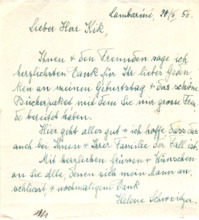 Lambarene, 20/6 56.
Lieber Herr Kik,
Ihnen + den Freunden sage ich
herzlichsten Dank für Ihr liebes Geden-
ken an meinen Geburtstag + das schöne
Bücherpaket mit dem Sie mir grosse Freude
bereitet haben.
Hier geht alles gut + ich hoffe dass das
auch bei Ihnen + Ihrer Familie der Fall ist.
Mit herzlichen Grüssen + Wünschen
an Sie alle, denen sich man dann an-
schliesst + nochmaligem Dank
Helene Schweitzer